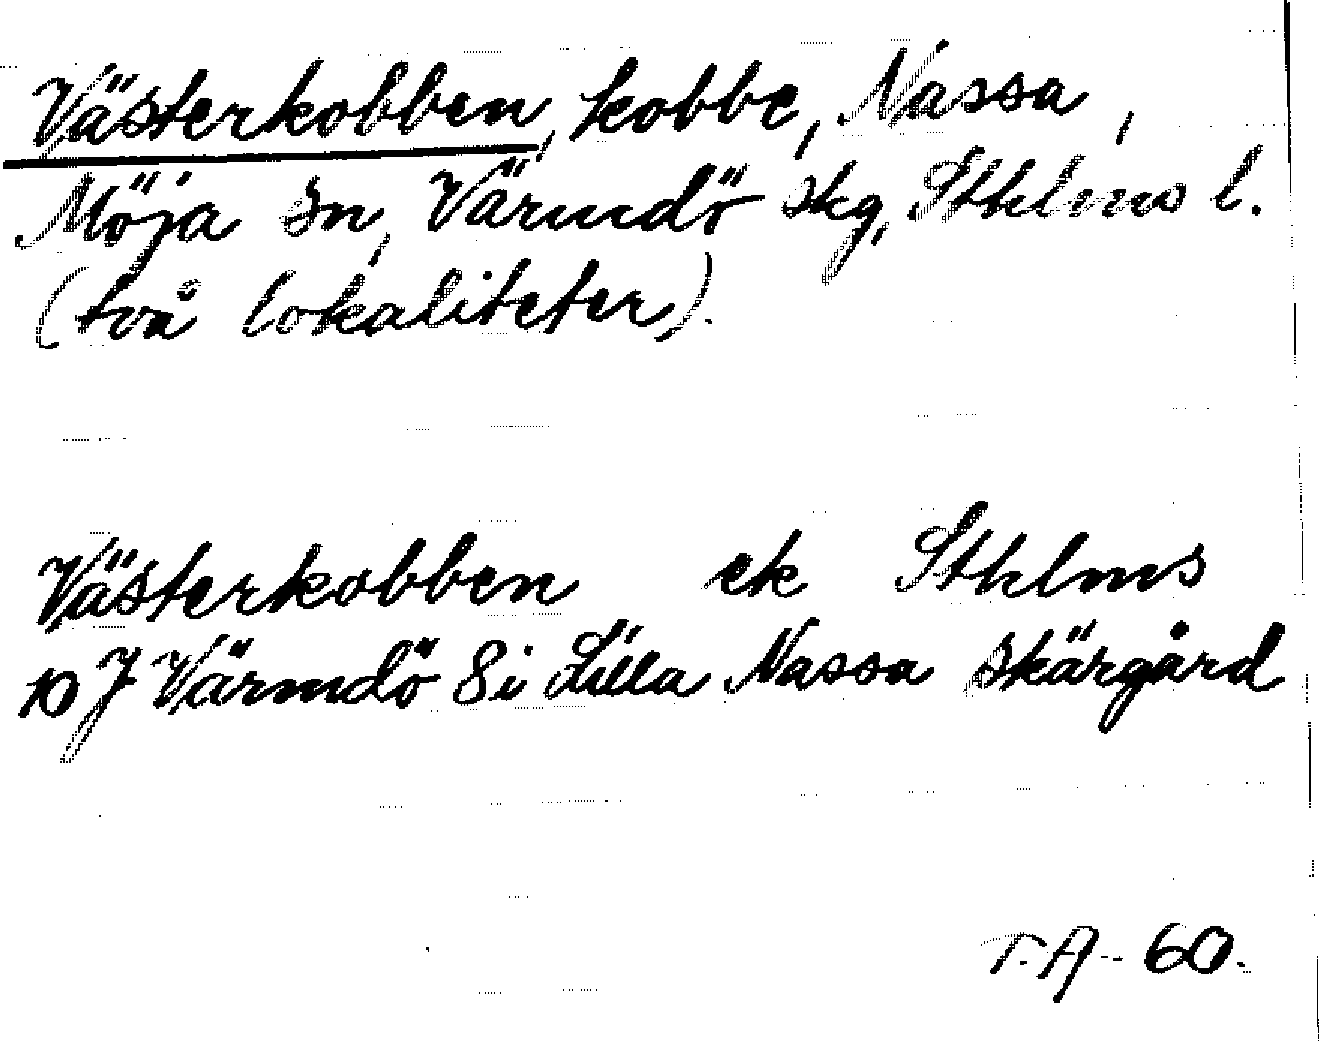 Västerkobben, kobbe, Nassa,
Möja sn, Värmdö skg, Sthlms l.
(två lokaliteter).
Västerkobben ek Sthlms
10 J Värmdö 8 i Lilla Nassa skärgård
T.A-60.